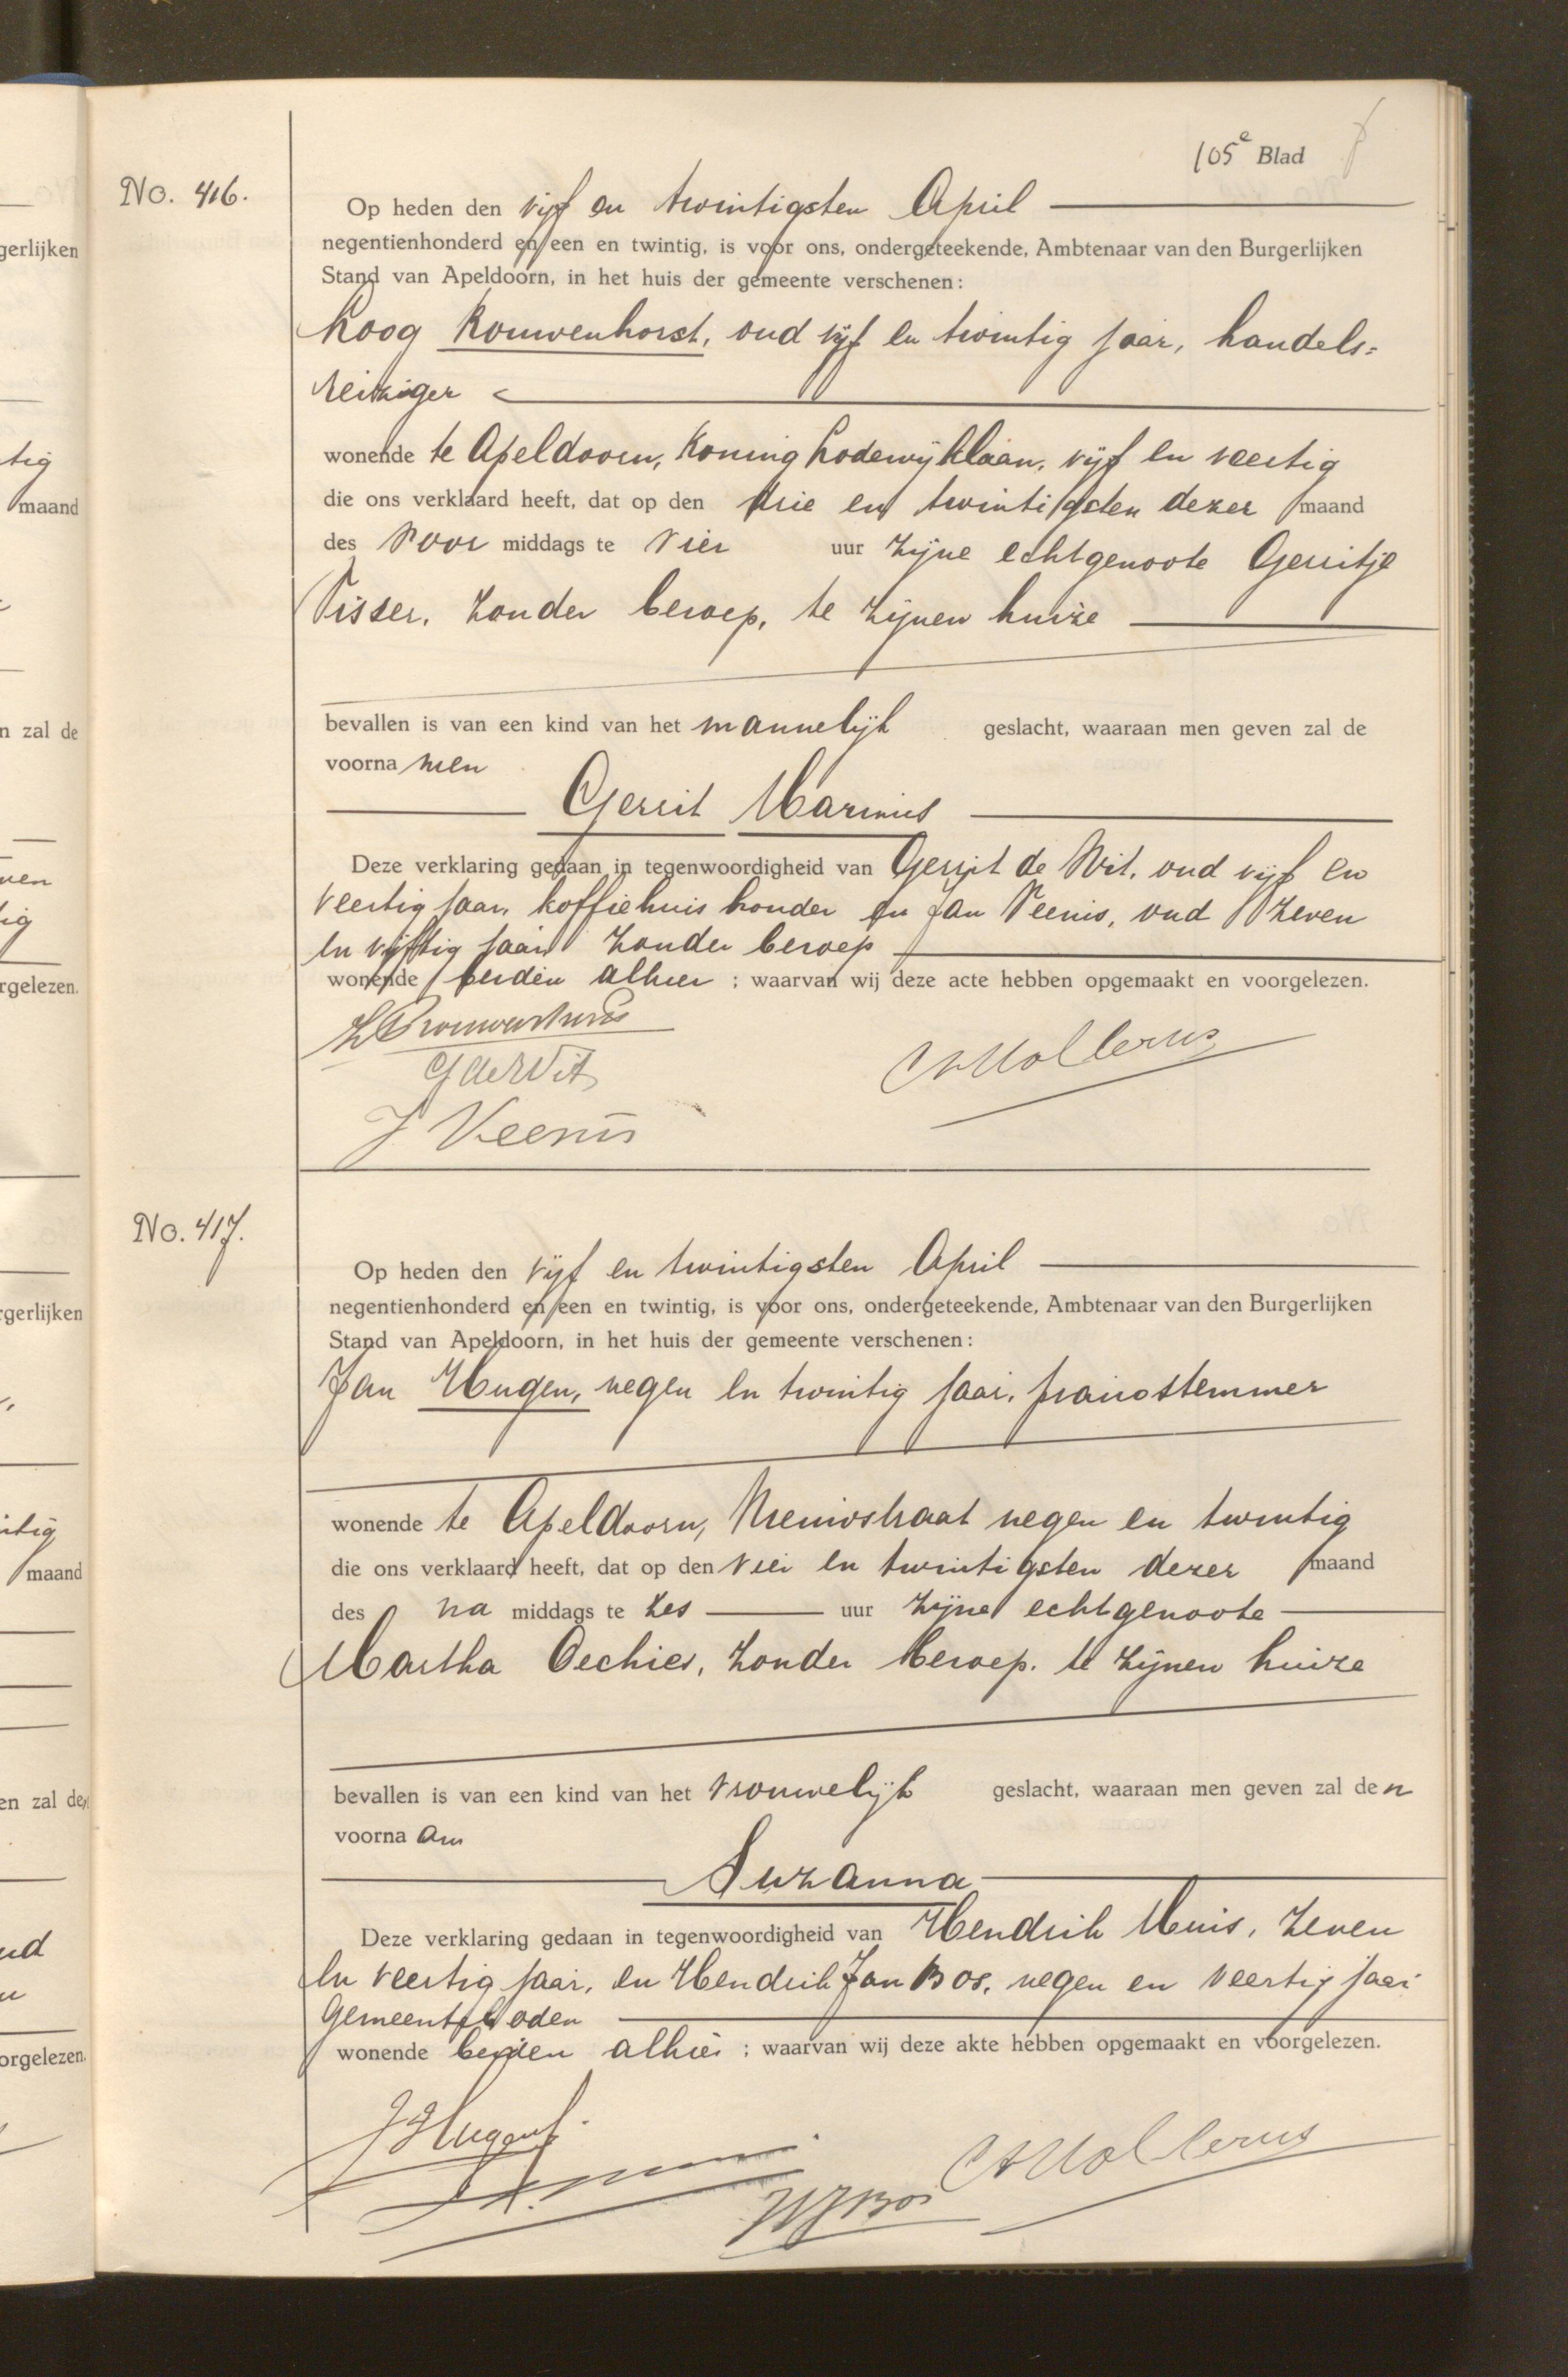 105e Blad
No. 416.
Op heden den vijf en twintigsten April
negentienhonderd en een en twintig, is voor ons, ondergeteekende, Ambtenaar van den Burgerlijken
Stand van Apeldoorn, in het huis der gemeente verschenen:
Koog Kouwenhorst, oud vijf en twintig jaar, handels=
reiziger
wonende te Apeldoorn, Koning Lodewijklaan, vijf en veertig
die ons verklaard heeft, dat op den drie en twintigsten dezer maand
des voor middags te vier uur zijne echtgenoote Gerritje
Visser, zonder beroep, te zijnen huize
bevallen is van een kind van het mannelijk geslacht, waaraan men geven zal de
voorna men
Gerrit Marinus
Deze verklaring gedaan in tegenwoordigheid van Gerrit de Wit, oud vijf en
veertig jaar, koffiehuis houder en Jan Veenis, oud zeven
en vijftig jaar zonder beroep
wonende beiden alhier ; waarvan wij deze acte hebben opgemaakt en voorgelezen.
G de Wit
J Veenis
No. 417.
Op heden den vijf en twintigsten April
negentienhonderd en een en twintig, is voor ons, ondergeteekende, Ambtenaar van den Burgerlijken
Stand van Apeldoorn, in het huis der gemeente verschenen:
Jan Hugen, negen en twintig jaar, pianostemmer
wonende te Apeldoorn, Nieuwstraat negen en twintig
die ons verklaard heeft, dat op den vier en twintigsten dezer maand
des na middags te zes uur zijne echtgenoote
Martha Oechies, zonder beroep, te zijnen huize
bevallen is van een kind van het vrouwelijk geslacht, waaraan men geven zal den
voorna am
Suzanna
Deze verklaring gedaan in tegenwoordigheid van Hendrik Muis, zeven
en veertig jaar, en Hendrik Jan Bos, negen en veertig jaar
Gemeenteboden
wonende beiden alhier ; waarvan wij deze akte hebben opgemaakt en voorgelezen.
J Hugen
HJ Bos